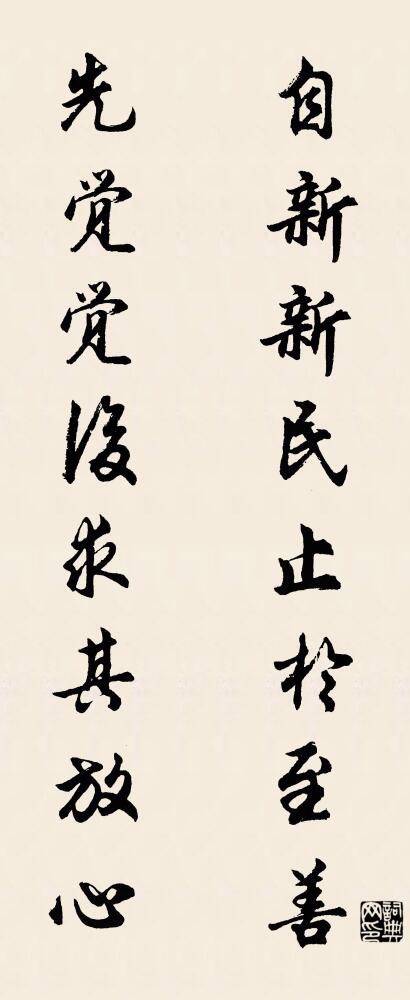 自新新民止於至善
先觉觉後求其放心
詞典网印